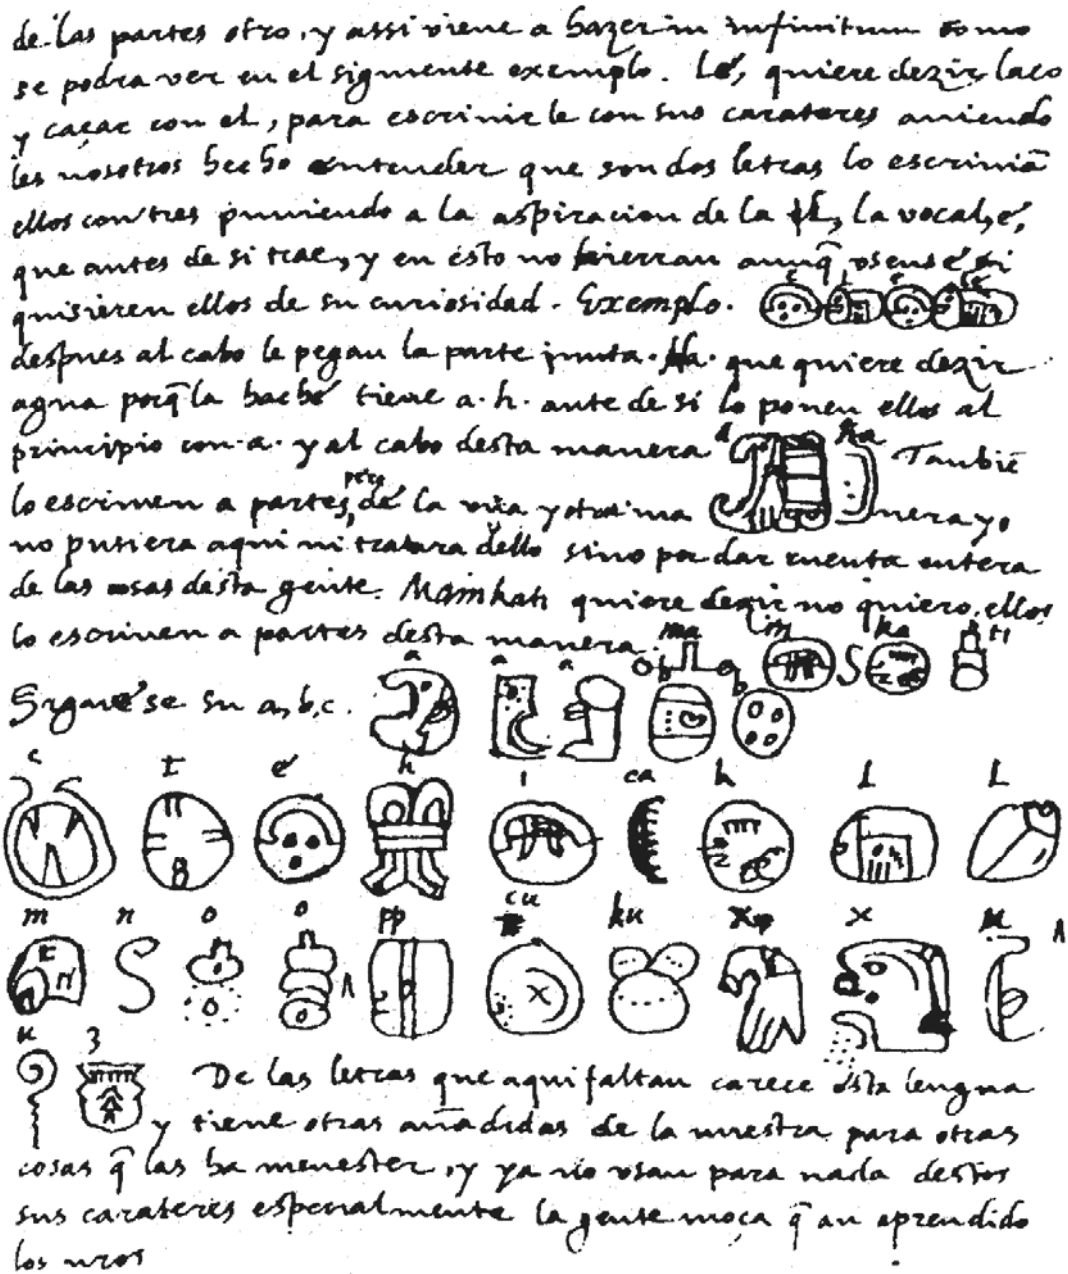 de las partes otro, y assi viene a hazer in infinitum como
se podra ver en el siguiente exemplo. Lé, quiere dezir laço
y caçar con el, para escrivirle con sus carateres aviendo
les nosotros hecho entender que son dos letras lo escriviā
ellos con tres puniendo a la aspiracion de la l, la vocal, é,
que antes de si trae, y en ésto no hierran aunq̄ vsense si
quisieren ellos de su curiosidad. Exemplo. e l e lé
despues al cabo le pegan la parte junta. Ha. que quiere dezir
agua porq̄ la hache tiene a. h. ante de si lo ponen ellos al
principio con a. y al cabo desta manera a ha Tambiē
lo escriven a partes, pero de la una y otra ma nera yo
no pusiera aqui ni tratara dello sino por dar cuenta entera
de las cosas desta gente. Mainkati quiere dezir no quiero, ellos
lo escriven a partes desta manera. ma i n ka ti
Siguese su a, b, c. a a a b b
c t é h i ca k l l
m n o o pp cu ku x x u
u z De las letras que aqui faltan carece ésta lengua
y tiene otras añadidas de la nuestra para otras
cosas q̄ las ha menester, y ya no usan para nada destos
sus carateres especialmente la gente moça q̄ an aprendido
los nros